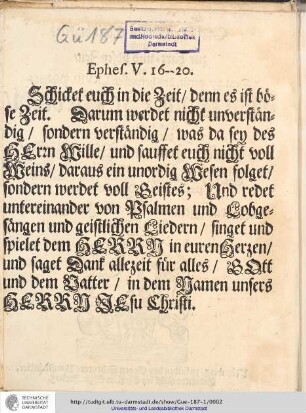 Gü 187
Ephes. V. 16-20.
Schicket euch in die Zeit/ denn es ist bö-
se Zeit. Darum werdet nicht unverstän-
dig/ sondern verständig/ was da sey des
HErrn Wille/ und sauffet euch nicht voll
Weins/ daraus ein unordig Wesen folget/
sondern werdet voll Geistes; Und redet
untereinander von Psalmen und Lobge-
sängen und geistlichen Liedern/ singet und
spielet dem HERRN in euren Herzen/
und saget Dank allezeit für alles/ GOtt
und dem Vatter/ in dem Namen unsers
HERRN JEsu Christi.
TECHNISCHE
UNIVERSITÄT
DARMSTADT
http://tudigit.ulb.tu-darmstadt.de/show/Gue-187-1/0002
Universitäts- und Landesbibliothek Darmstadt